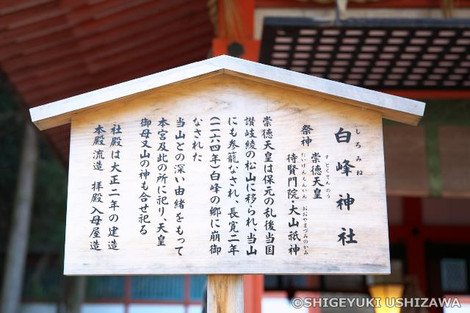 白峰神社
しろみね
祭神 崇徳天皇
すとくてんのう
待賢門院、大山祇神
たいけんもんいん おおやまづみのかみ
崇徳天皇は保元の乱後当国
讃岐綾の松山に移られ、当山
にも参籠なされ、長寛二年
(一一六四年)白峰の郷に崩御
なされた
当山との深い由緒をもって
本宮及此の所に祀り、天皇
御母又山の神も合せ祀る
社殿は大正一二年の建造
本殿流造 拝殿入母屋造
©SHIGEYUKI USHIZAWA